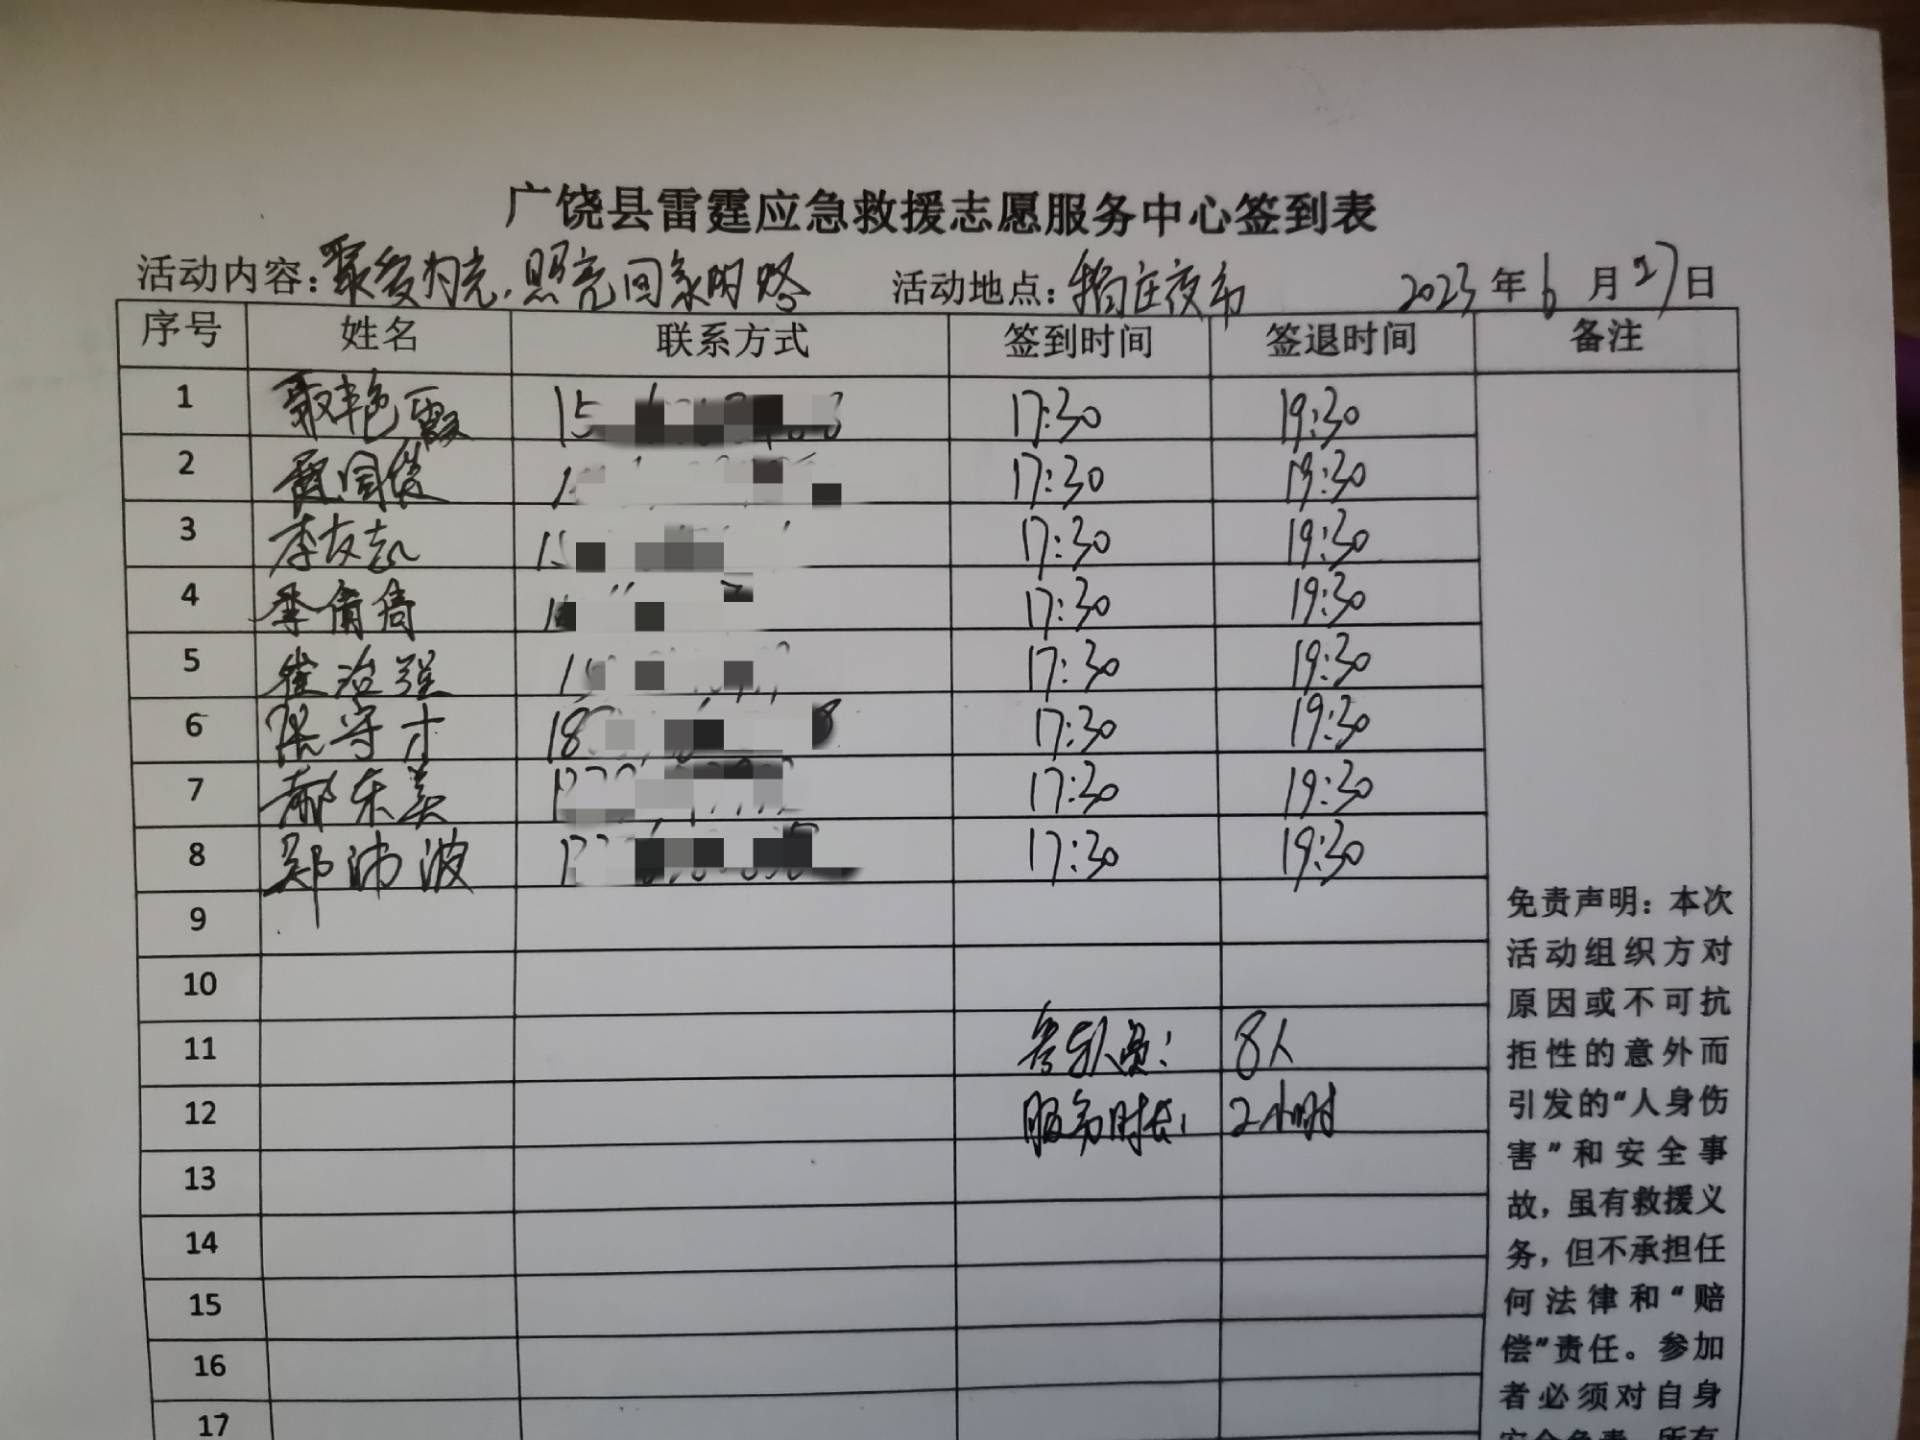 广饶县雷霆应急救援志愿服务中心签到表
活动内容：聚爱为光，照亮回家的路 活动地点：稻庄夜市 2023年6月27日
序号 姓名 联系方式 签到时间 签退时间 备注
1 聂艳霞 15 17:30 19:30
2 17:30 19:30
3 李友凯 17:30 19:30
4 李倩倩 17:30 19:30
5 崔治强 17:30 19:30
6 张守才 18 17:30 19:30
7 郝东美 17:30 19:30
8 郑沛波 17:30 19:30
9
10
11 参与人员： 8人
12 服务时长： 2小时
13
14
15
16
17
免责声明：本次
活动组织方对
原因或不可抗
拒性的意外而
引发的“人身伤
害”和安全事
故，虽有救援义
务，但不承担任
何法律和“赔
偿”责任。参加
者必须对自身
安全负责，所有